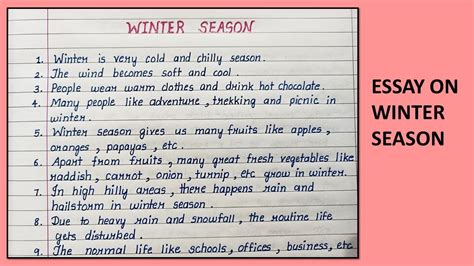 WINTER SEASON
1. Winter is very cold and chilly season.
2. The wind becomes soft and cool.
3. People wear warm clothes and drink hot chocolate.
4. Many people like adventure, trekking and picnic in
winter.
5. Winter season gives us many fruits like apples,
oranges, papayas, etc.
6. Apart from fruits, many great fresh vegetables like
raddish, carrot, onion, turnip, etc grow in winter.
7. In high hilly areas, there happens rain and
hailstorm in winter season.
8. Due to heavy rain and snowfall, the routine life
gets disturbed.
9. The normal life like schools, offices, business, etc
ESSAY ON
WINTER
SEASON